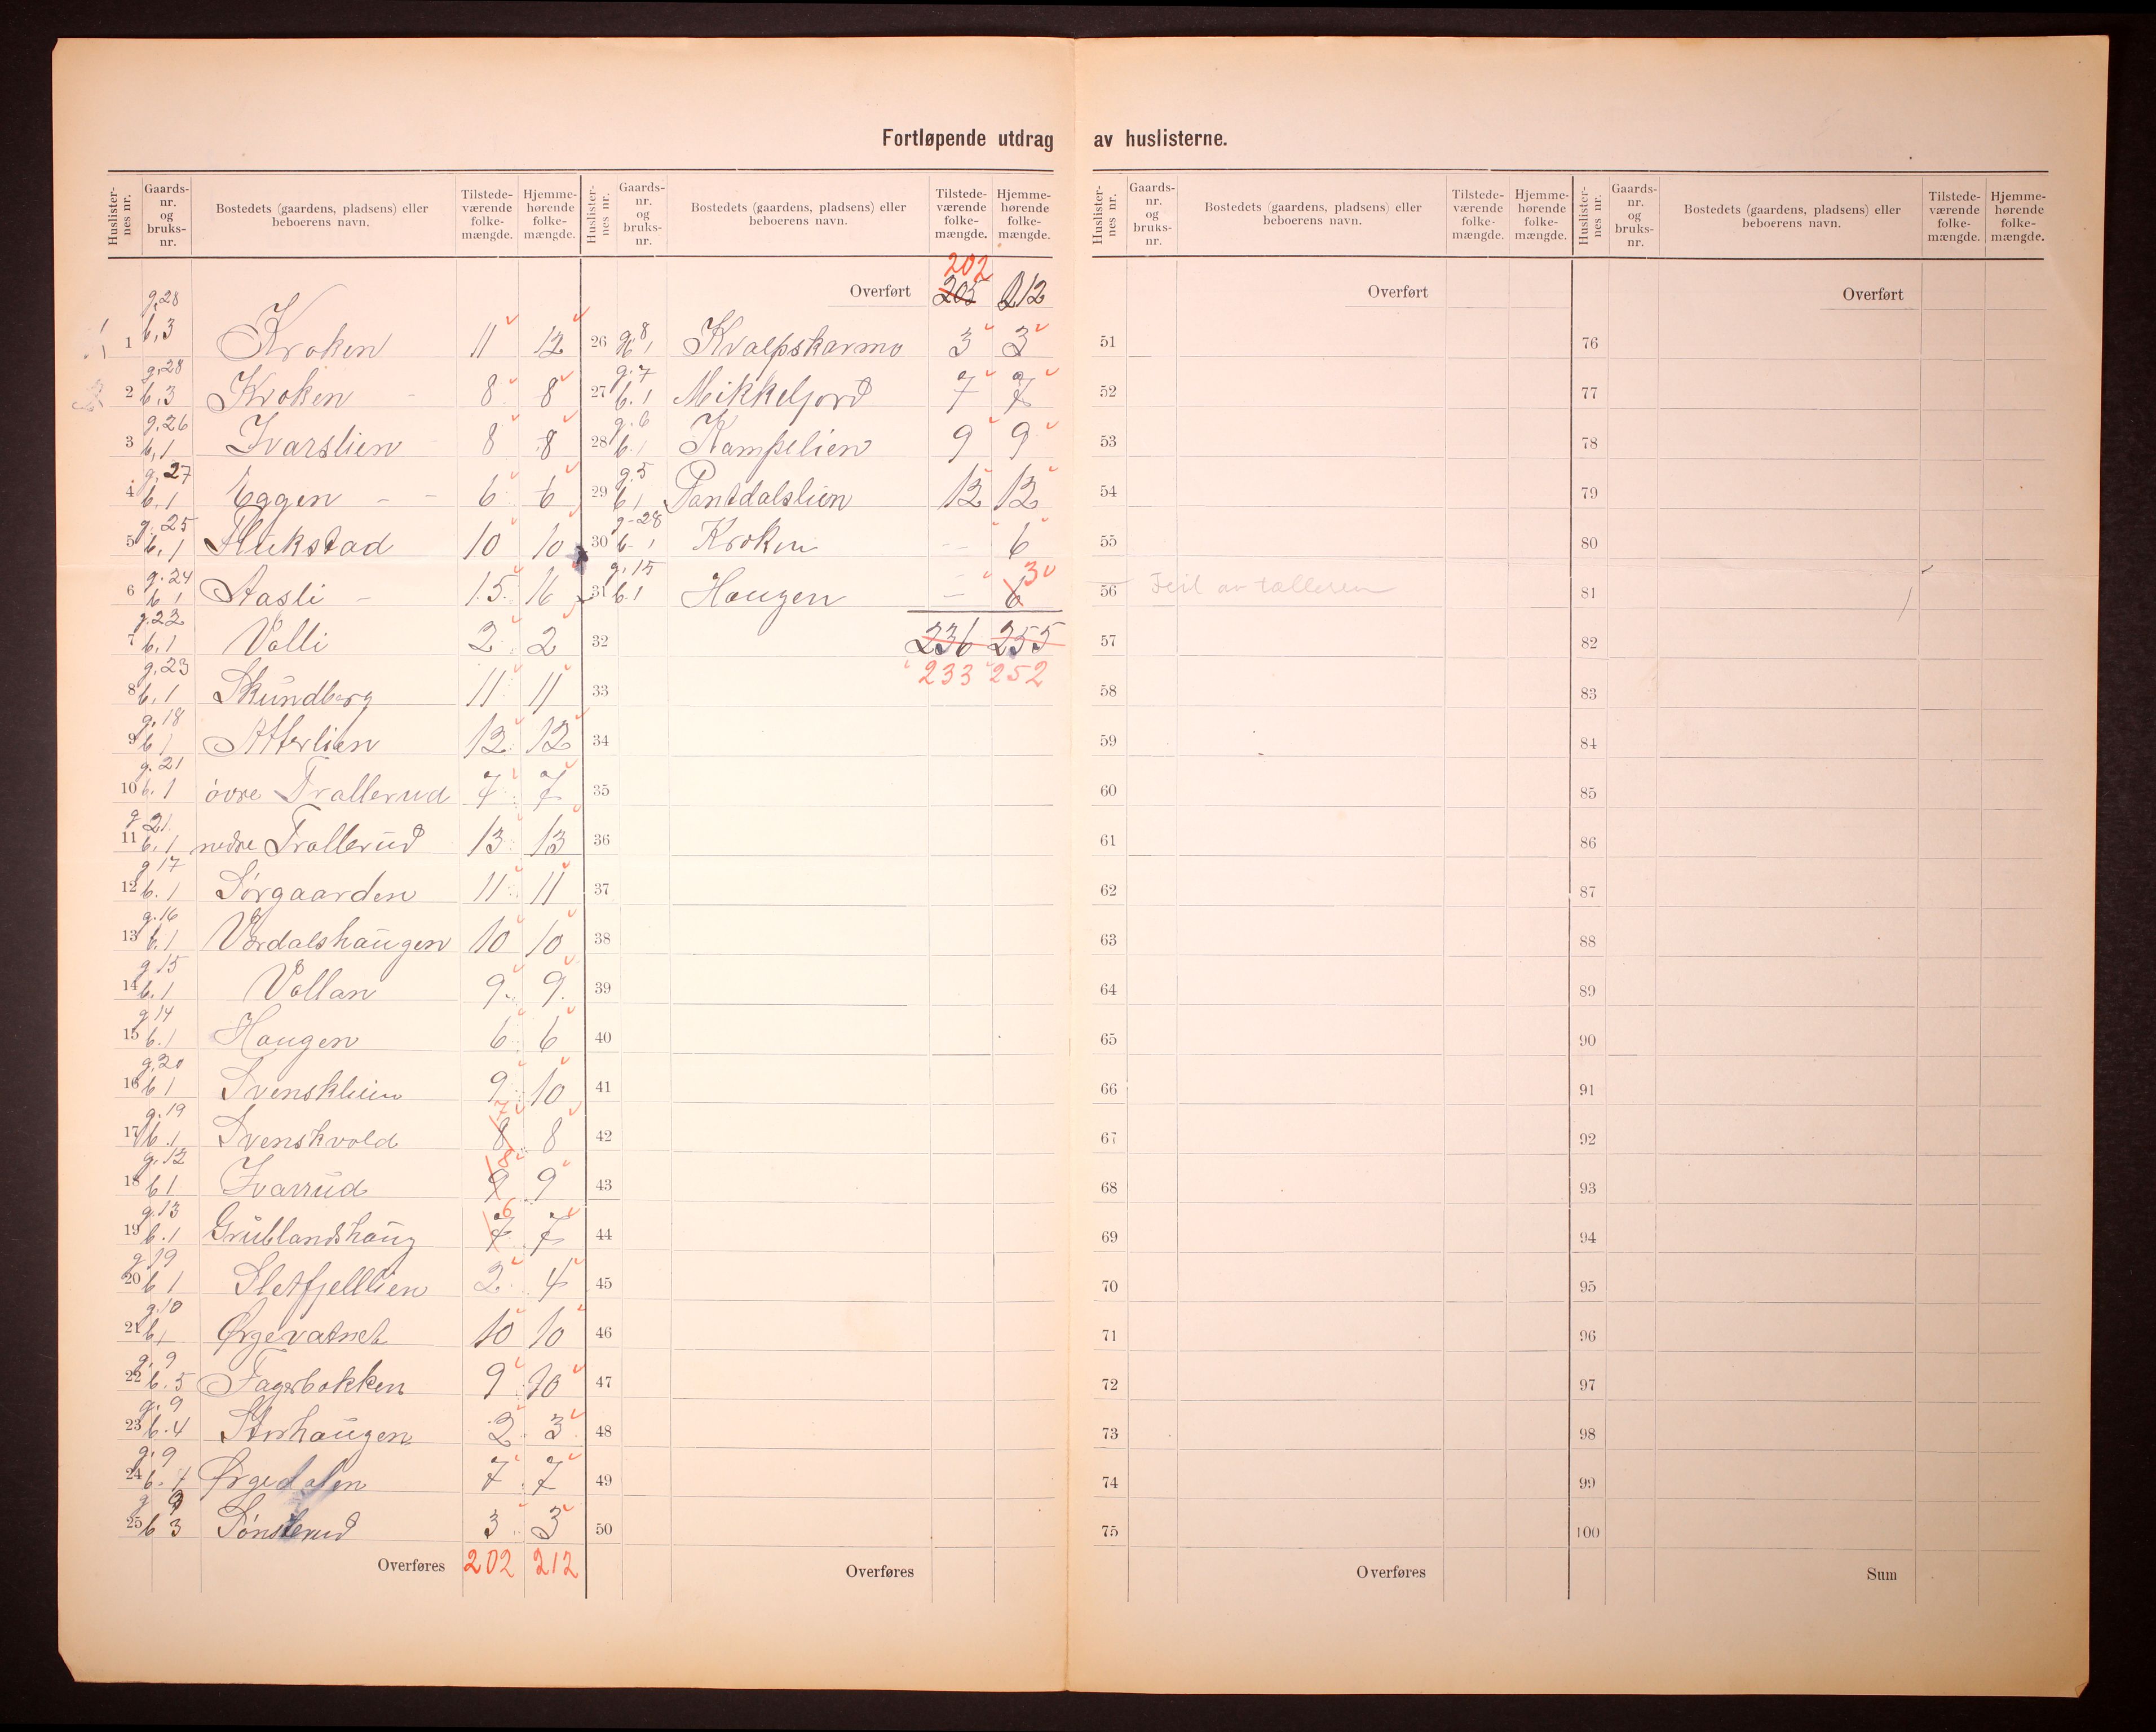 Fortløpende utdrag av huslisterne.
Huslisternes nr. Gaards-nr. og bruks-nr. Bostedets (gaardens, pladsens) eller beboerens navn. Tilstede-værende folke-mængde. Hjemme-hørende folke-mængde.
1 g. 28 b. 3 Kroken 11 12
2 g. 28 b. 3 Kroken 8 8
3 g. 26 b. 1 Ivarslien 8 8
4 g. 27 b. 1 Eggen - - 6 6
5 g. 25 b. 1 Flukstad 10 10
6 g. 24 b. 1 Aasli - 15 16
7 g. 22 b. 1 Valli 2 2
8 g. 23 b. 1 Skundberg 11 11
9 g. 18 b. 1 Atterlien 12 12
10 g. 21 b. 1 øvre Trallerud 7 7
11 g 21. b. 1 nedre Trallerud 13 13
12 g 17 b. 1 Sørgaarden 11 11
13 g. 16 b. 1 Vardalshaugen 10 10
14 g 15 b. 1 Vallan 9 9
15 g 14 b. 1 Haugen 6 6
16 g. 20 b 1 Svensklien 9 10
17 g. 19 b. 1 Svenskvold 8 7 8
18 g. 12 b 1 Ivarrud 9 8 9
19 g. 13 b. 1 Grublandshaug 7 6 7
20 g 19 b 1 Sletfjellien 2 4
21 g. 10 b, Ørgevatnet 10 10
22 g. 9 b. 5 Fagerbakken 9 10
23 g. 9 b. 4 Storhaugen 2 3
24 g. 9 b. 1 Ørgedalen 7 7
25 g 9 b 3 Sønsterud 3 3
Overføres 202 212
Huslisternes nr. Gaards-nr. og bruks-nr. Bostedets (gaardens, pladsens) eller beboerens navn. Tilstede-værende folke-mængde. Hjemme-hørende folke-mængde.
202
Overført 205 212
26 g. 8 b. 1 Kvalpskarmo 3 3
27 g. 7 b. 1 Mikkeljord 7 7
28 g. 6 b. 1 Kampelien 9 9
29 g. 5 b. 1 Pantdalslien 12 12
30 g - 28 b - 1 Kroken - 6
31 g. 15 b. 1 Haugen - 6 3
32 236 255
33 233 252
34
35
36
37
38
39
40
41
42
43
44
45
46
47
48
49
50
Overføres
Huslisternes nr. Gaards-nr. og bruks-nr. Bostedets (gaardens, pladsens) eller beboerens navn. Tilstede-værende folke-mængde. Hjemme-hørende folke-mængde.
Overført
51
52
53
54
55
56 Feil av tælleren
57
58
59
60
61
62
63
64
65
66
67
68
69
70
71
72
73
74
75
Overføres
Huslisternes nr. Gaards-nr. og bruks-nr. Bostedets (gaardens, pladsens) eller beboerens navn. Tilstede-værende folke-mængde. Hjemme-hørende folke-mængde.
Overført
76
77
78
79
80
81
82
83
84
85
86
87
88
89
90
91
92
93
94
95
96
97
98
99
100
Sum